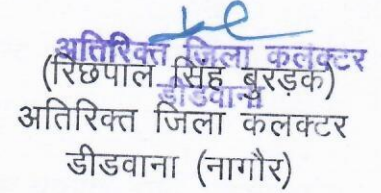 अतिरिक्त जिला कलक्टर
(रिछपाल सिंह बुरड़क)
डीडवाना
अतिरिक्त जिला कलक्टर
डीडवाना (नागौर)